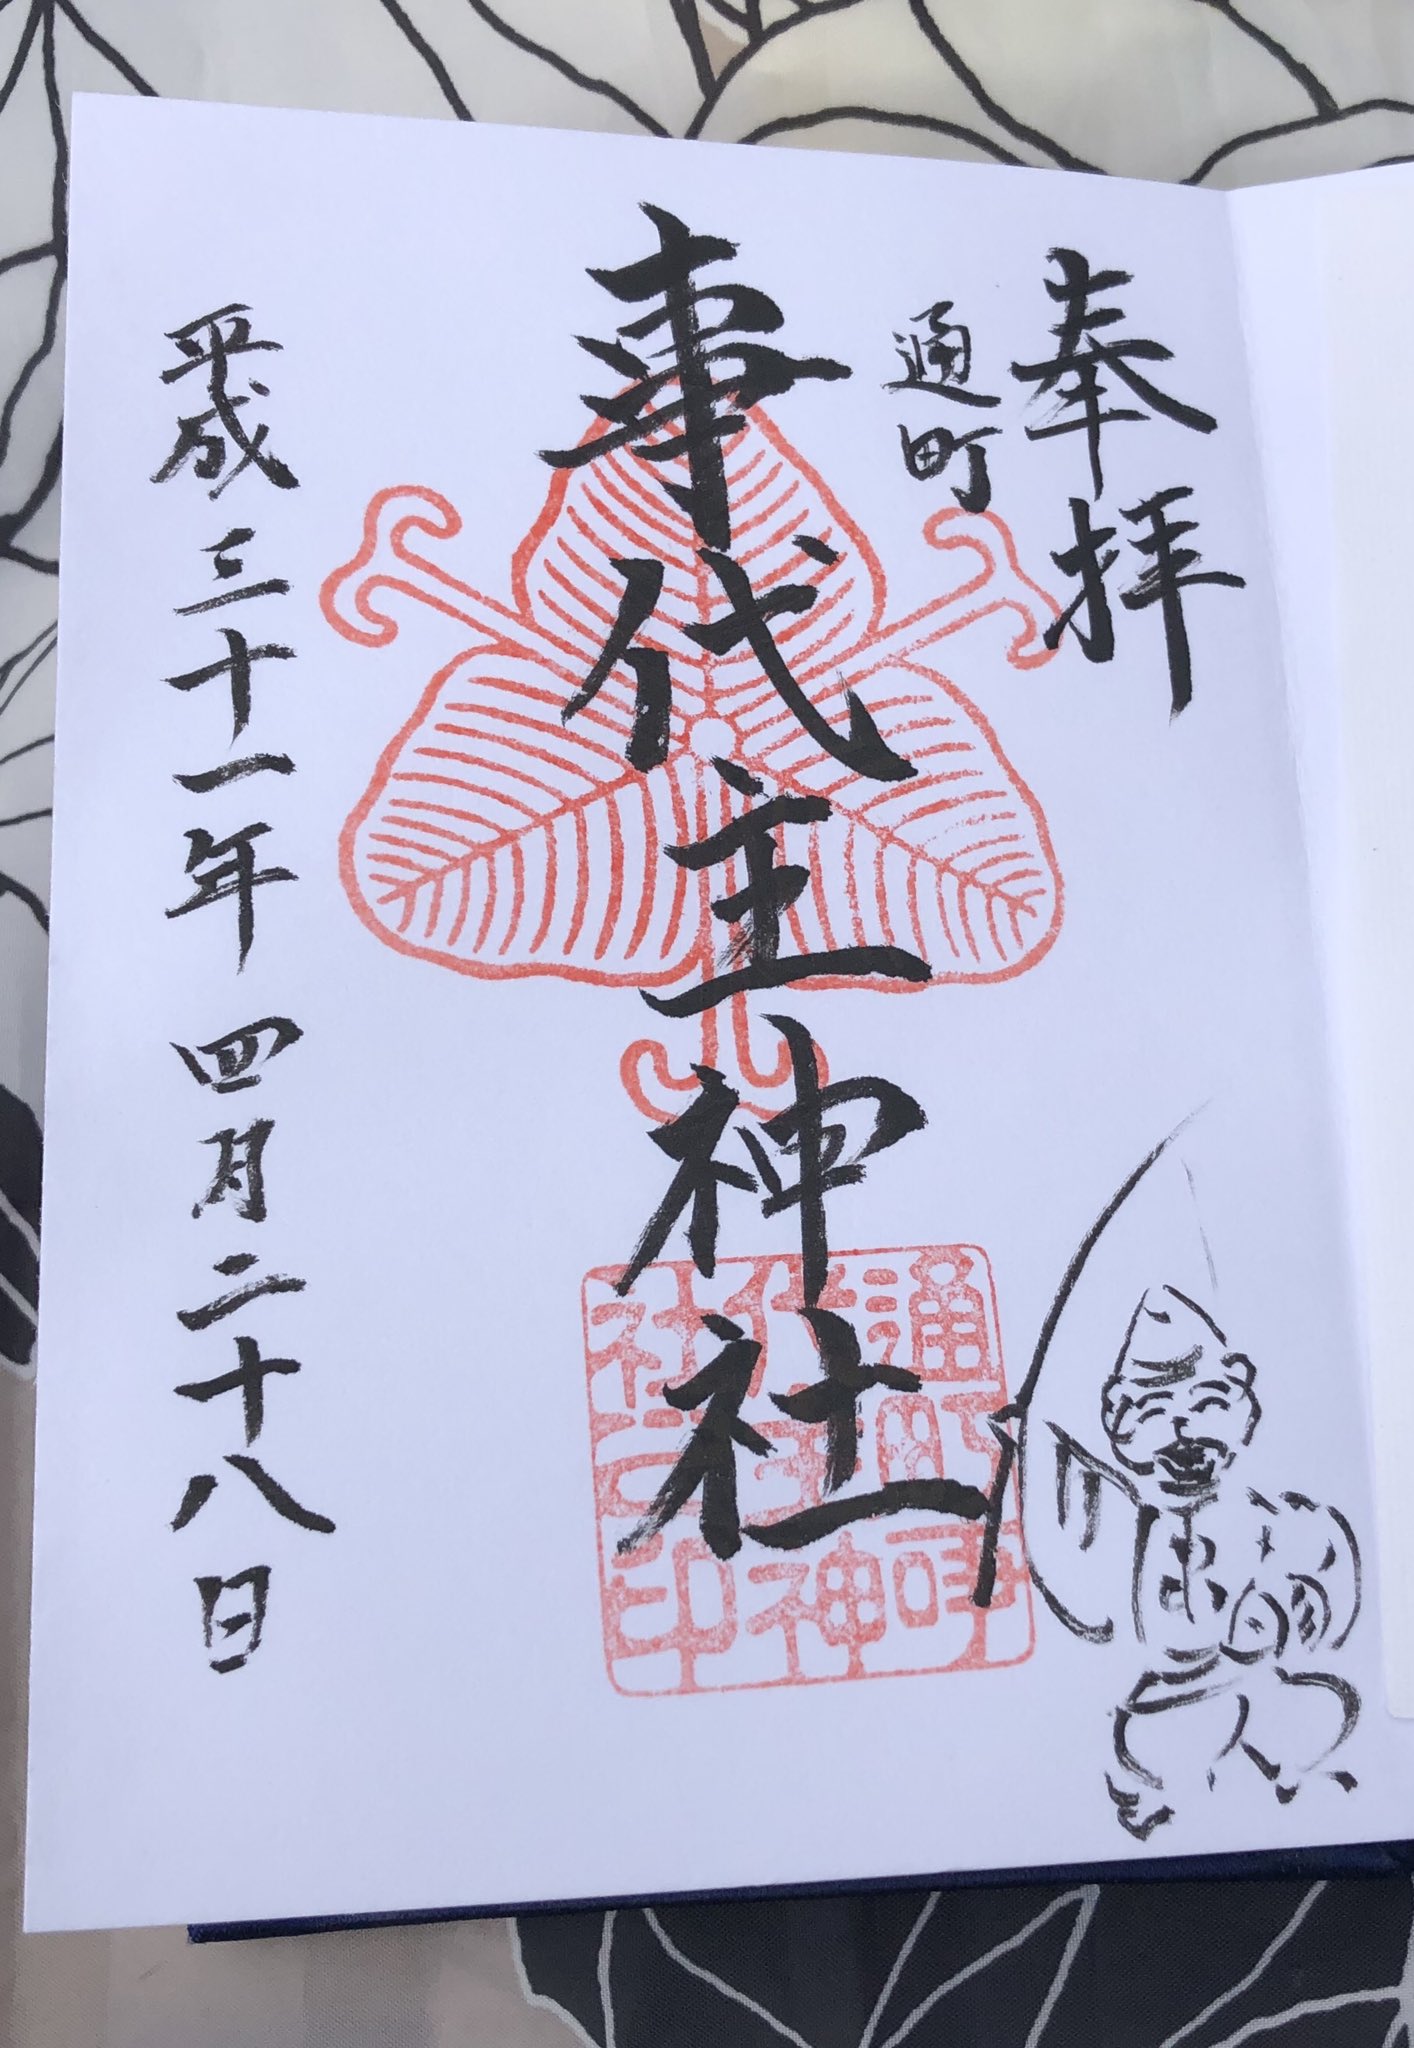 奉拝
通町
事代主神社
通町事
代主神
社之印
平成三十一年四月二十八日